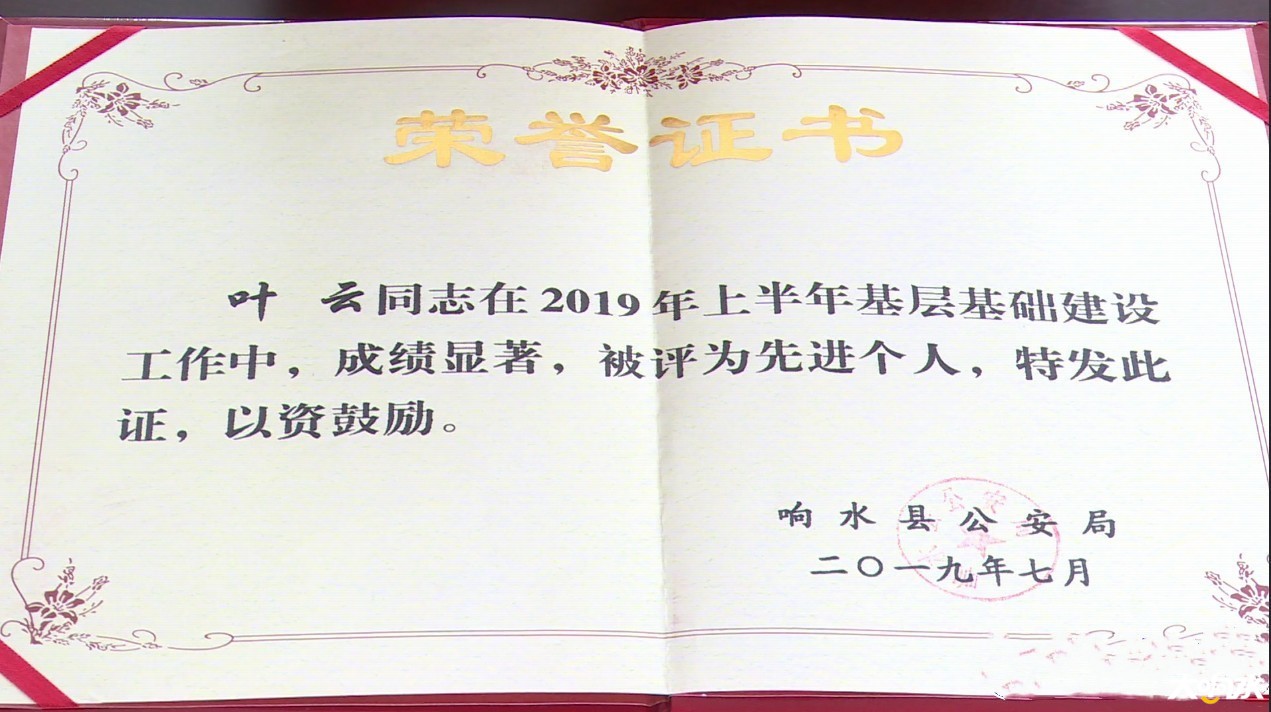 荣誉证书
叶 云同志在2019年上半年基层基础建设
工作中，成绩显著，被评为先进个人，特发此
证，以资鼓励。
响水县公安局
二〇一九年七月